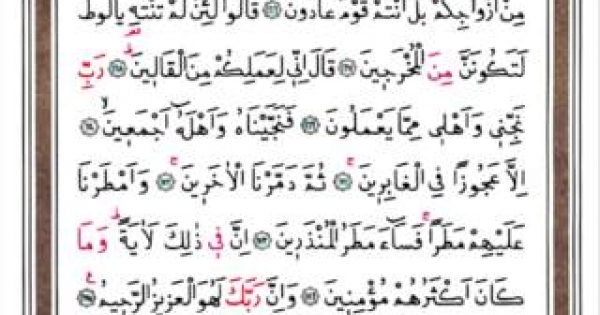 مِنْ اَزْوَاجِكُمْ بَلْ اَنْتُمْ قَوْمٌ عَادُونَ ﴿١٦٦﴾ قَالُوا لَئِنْ لَمْ تَنْتَهِ يَالُوطُ
لَتَكُونَنَّ مِنَ الْمُخْرَجِينَ ﴿١٦٧﴾ قَالَ اِنِّى لِعَمَلِكُمْ مِنَ الْقَالِينَ ﴿١٦٨﴾ رَبِّ
نَجِّنِى وَاَهْلِى مِمَّا يَعْمَلُونَ ﴿١٦٩﴾ فَنَجَّيْنَاهُ وَاَهْلَهُٓ اَجْمَعِينَ ﴿١٧٠﴾
اِلَّا عَجُوزًا فِى الْغَابِرِينَ ﴿١٧١﴾ ثُمَّ دَمَّرْنَا الْاٰخَرِينَ ﴿١٧٢﴾ وَاَمْطَرْنَا
عَلَيْهِمْ مَطَرًا فَسَٓاءَ مَطَرُ الْمُنْذَرِينَ ﴿١٧٣﴾ اِنَّ فِى ذٰلِكَ لَاٰيَةً وَمَا
كَانَ اَكْثَرُهُمْ مُؤْمِنِينَ ﴿١٧٤﴾ وَاِنَّ رَبَّكَ لَهُوَ الْعَزِيزُ الرَّحِيمُ ﴿١٧٥﴾